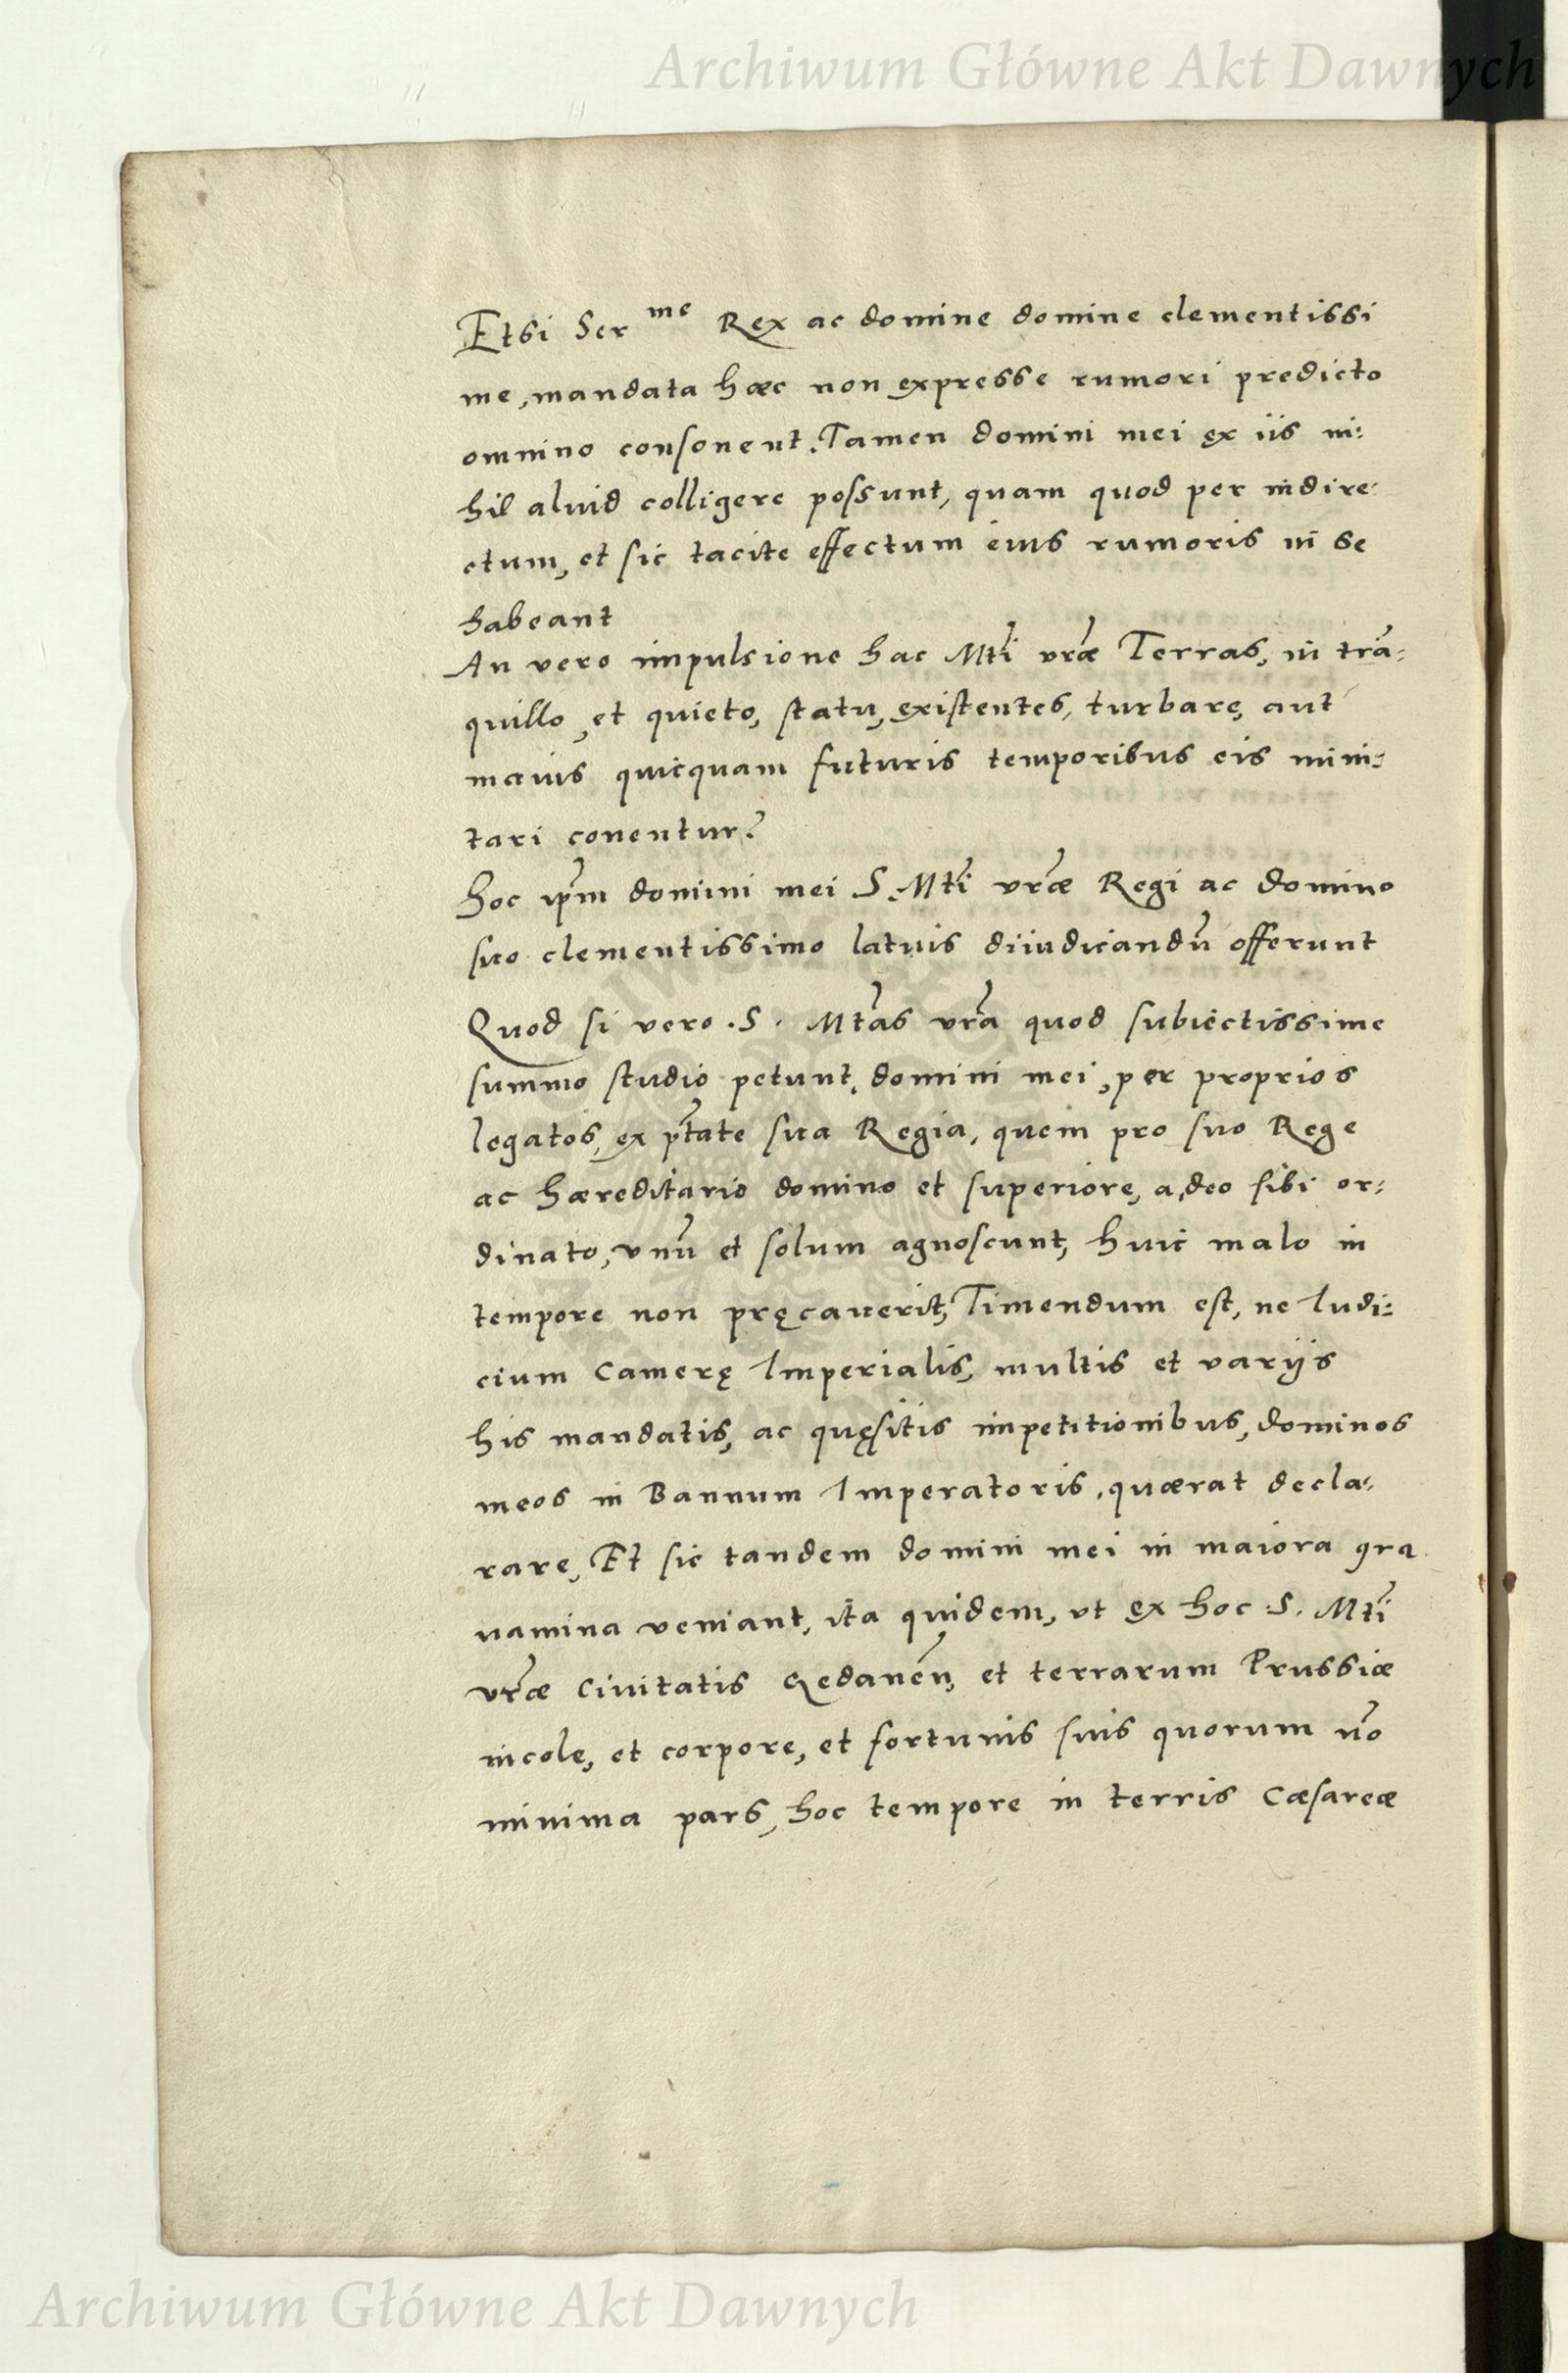 Archiwum Główne Akt Dawnych
Etsi Ser me Rex ac domine domine clementissi
me, mandata hæc non expresse rumori predicto
omnino consonent. Tamen domini mei ex iis ni:
hil aliud colligere possunt, quam quod per indire:
ctum, et sic tacite effectum eius rumoris in se
habeant
An vero impulsione hac Mti vræ Terras, in trā:
quillo, et quieto, statu, existentes, turbare, aut
maius quicquam futuris temporibus eis mini:
tari conentur?
Hoc ipm domini mei S. Mti vræ Regi ac domino
suo clementissimo latius diiudicandū offerunt
Quod si vero .S. Mtas vra quod subiectissime
summo studio petunt, domini mei, per proprios
legatos, ex ptate sua Regia, quem pro suo Rege
ac hæreditario domino et superiore, a, deo sibi or:
dinato, vnū et solum agnoscunt, huic malo in
tempore non pręcauerit, Timendum est, ne Iudi:
cium Camerę Imperialis, multis et varijs
his mandatis, ac quęsitis impetitionibus, dominos
meos in Bannum Imperatoris, quærat decla:
rare, Et sic tandem domini mei in maiora gra
uamina veniant, ita quidem, vt ex hoc .S. Mti
vræ Ciuitatis Gedanēn, et terrarum Prussiæ
incole, et corpore, et fortunis suis quorum nō
minima pars, hoc tempore in terris Cæsareæ
Archiwum Główne Akt Dawnych